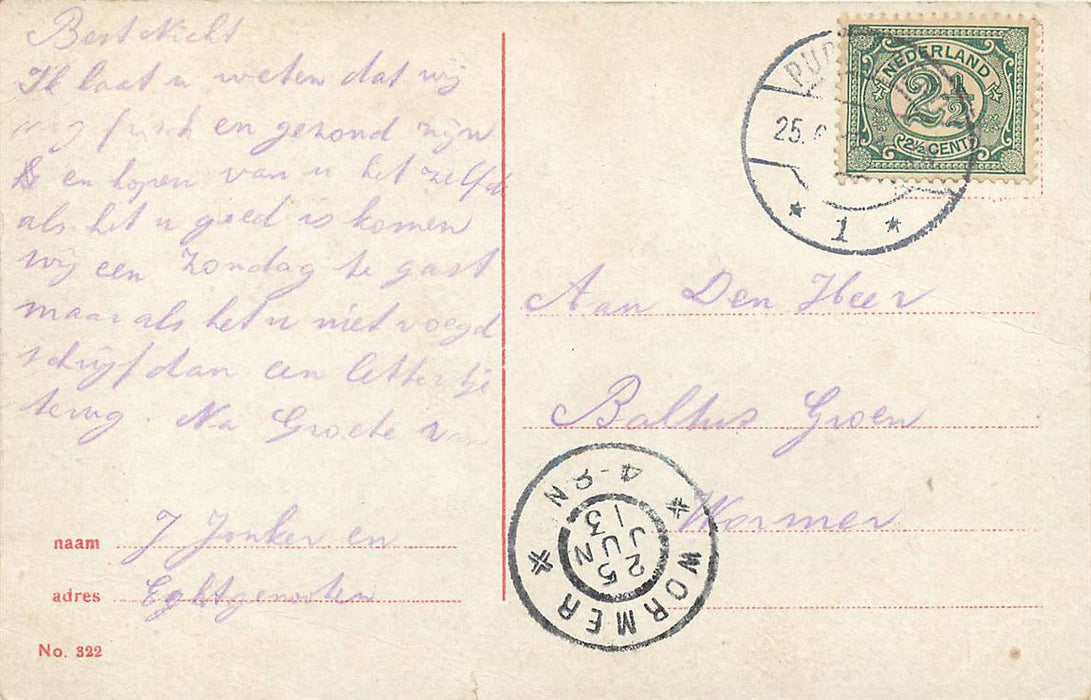 Best Nicht
Ik laat u weten dat wij
nog frisch en gezond zijn
en hopen van u het zelfde
als het u goed is komen
wij een Zondag te gast
maar als het u niet voegd
schrijf dan een lettertje
terug. Na Groete van
naam J Jonker en
adres Eghtgenooten
No. 322
NEDERLAND
2½
2½ CENT
PUR
25.
* 1 *
Aan Den Heer
Baltus Groen
Wormer
* WORMER *
25
JUN
13
4-9N